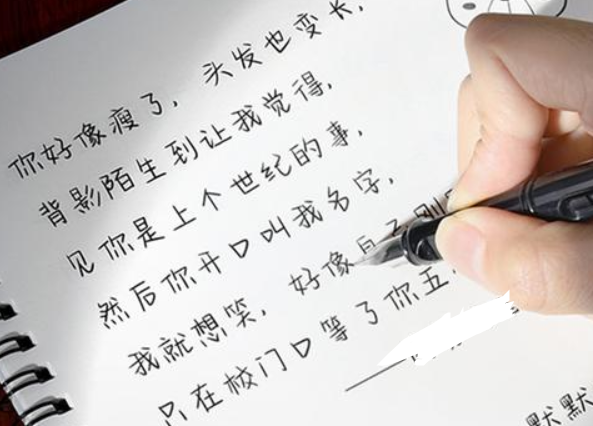 你好像瘦了,头发也变长,
背影陌生到让我觉得,
见你是上个世纪的事,
然后你开口叫我名字,
我就想笑,好像
只在校门口等了你五
默默